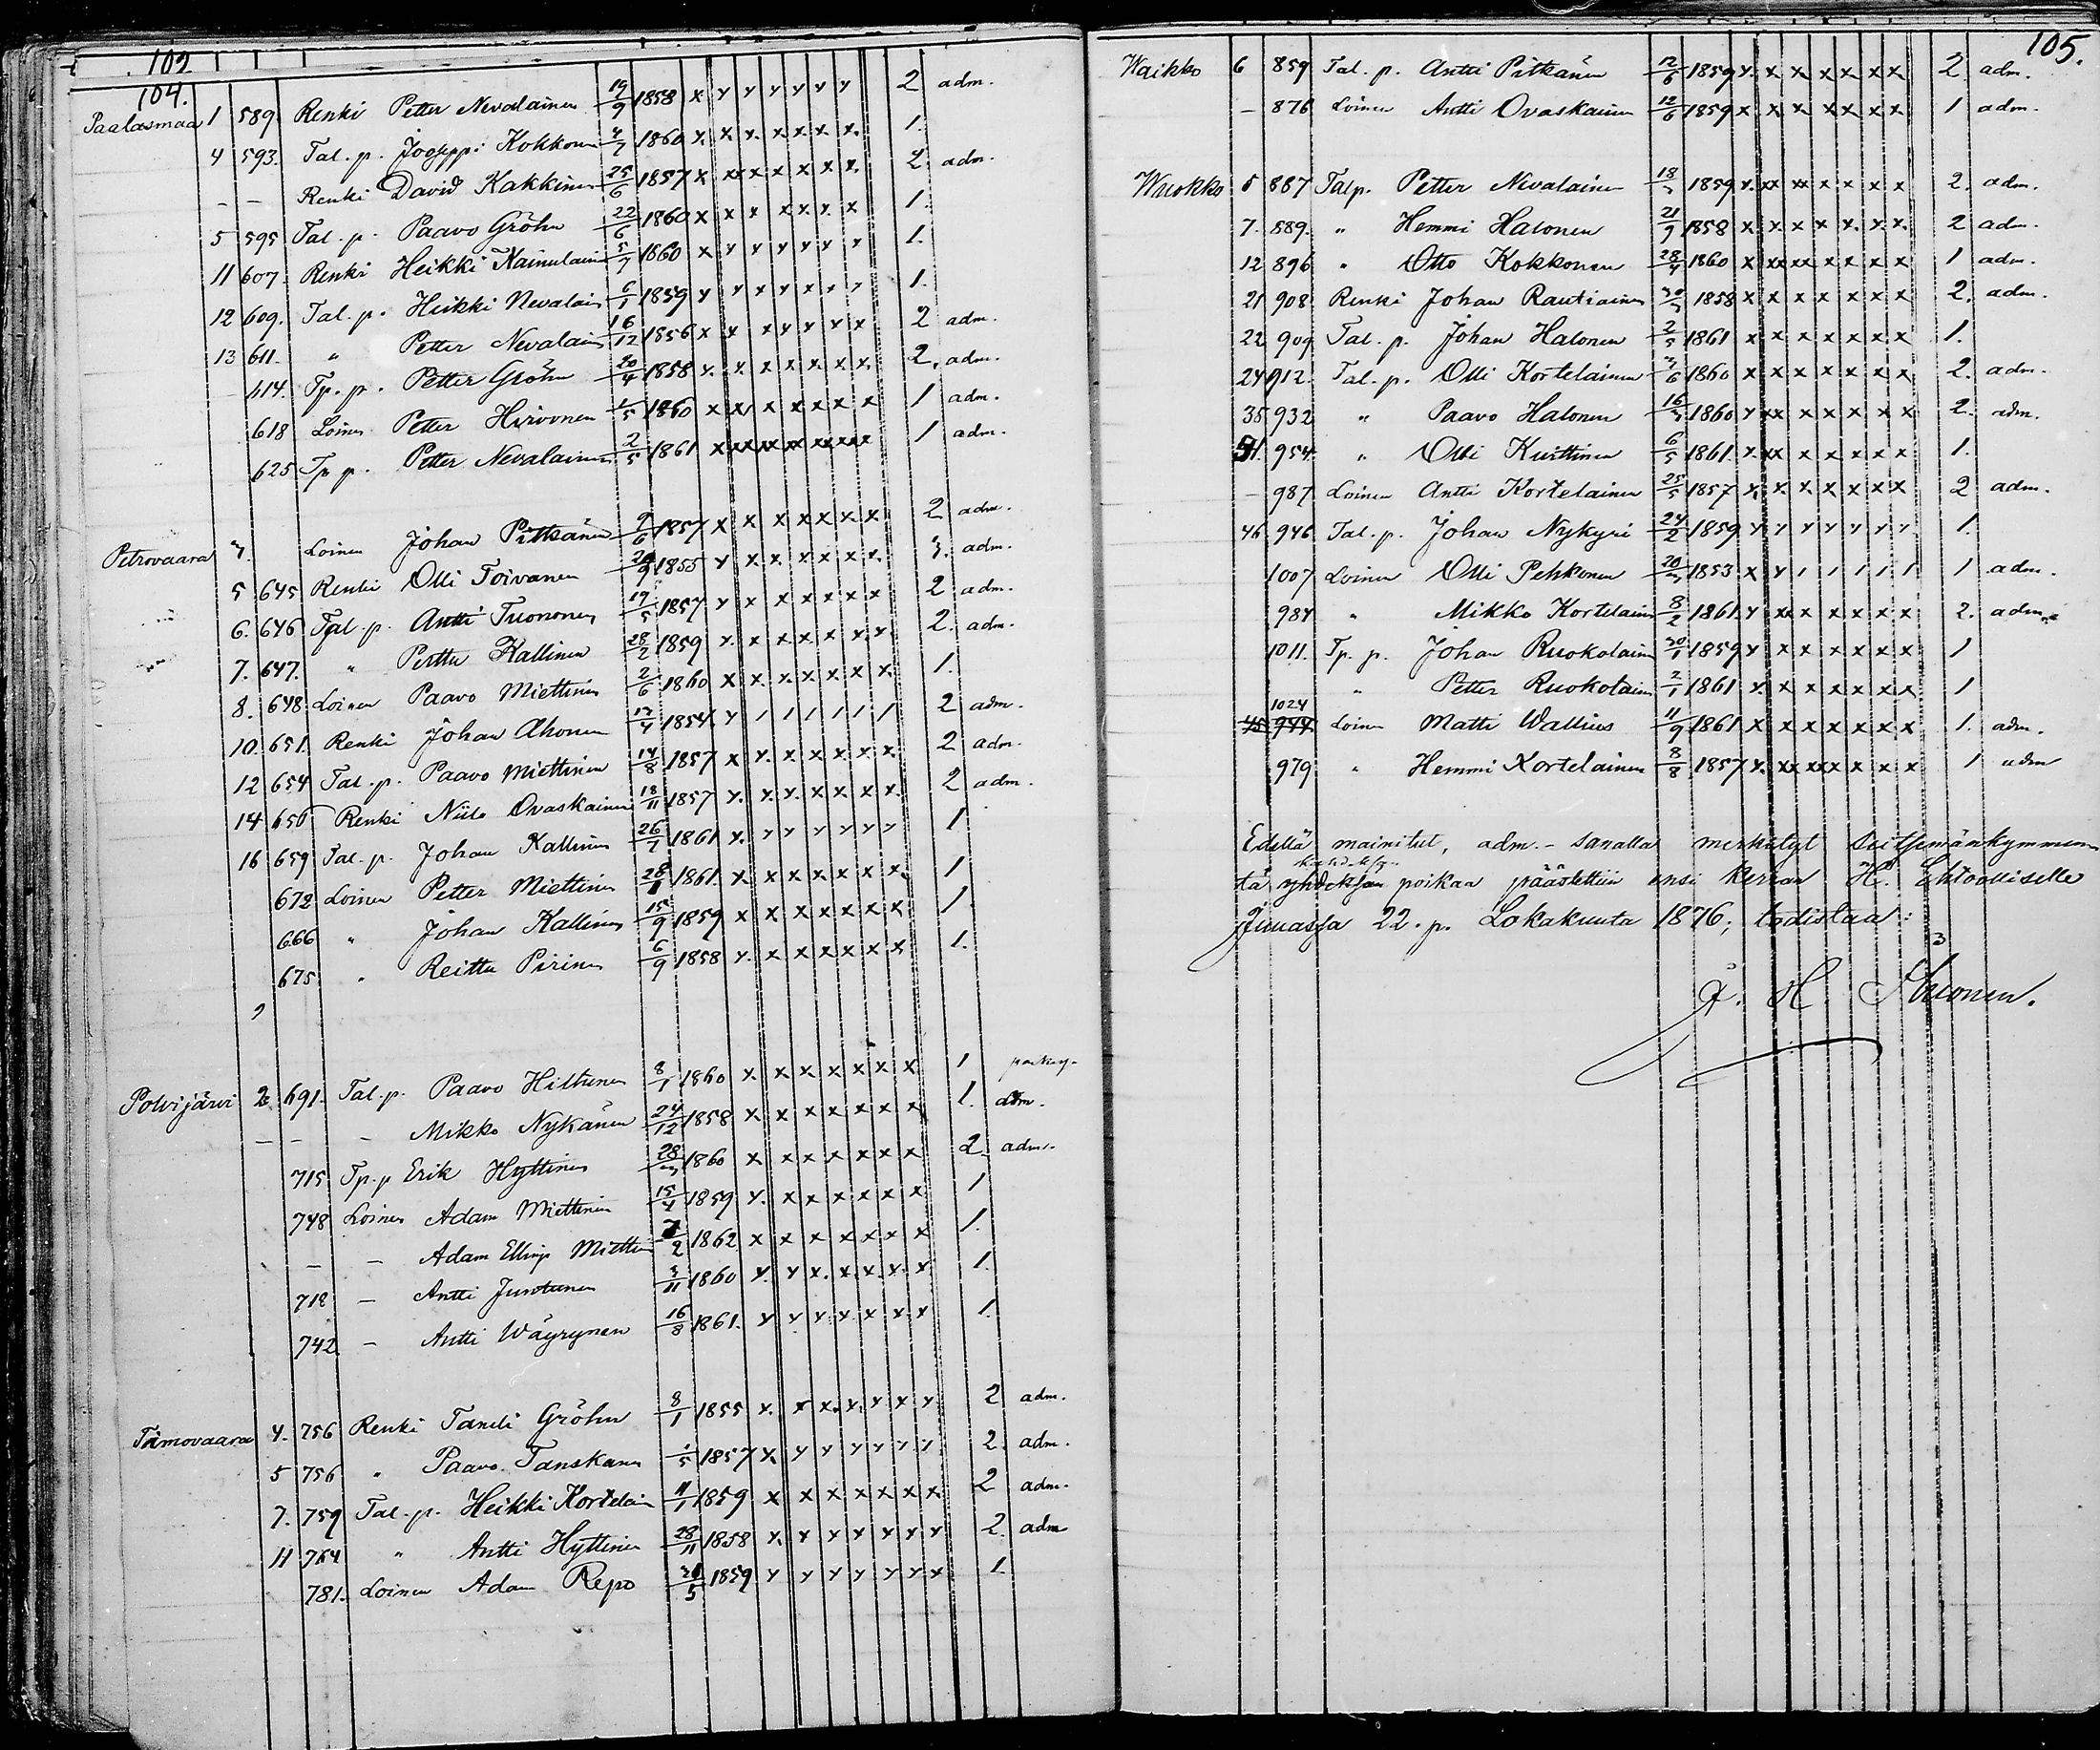 102
104.
Paalasmaa 1 589 Renki Petter Nevalainen 19/9 1858 x y y y y y y 2 adm.
4 593. Tal. p. Jooseppi Kokkonen 4/7 1860 x x x x x x x 1.
- - Renki David Kakkinen 25/6 1857 x xx x x x x x 2. adm.
5 595 Tal. p. Paavo Gröhn 22/6 1860 x x x x x x x 1.
11 607. Renki Heikki Kainulain 5/7 1860 x y y y y y y 1.
12 609. Tal. p. Heikki Nevalain 6/1 1859 y y y y y y y 1.
13 611. " Petter Nevalain 16/12 1856 x x x y y y x 2 adm.
614. Tp. p. Petter Gröhn 20/4 1858 x x x x x x x 2. adm.
618 Loinen Petter Hirvonen 1/5 1860 x xx x x x x x 1 adm.
625 Tp p. Petter Nevalainen 2/5 1861 x xx xx xx xx xx xx 1 adm.
Petrovaara 3. Loinen Johan Pitkänen 9/6 1857 x x x x x x x 2 adm.
5 645 Renki Olli Toivanen 1855 y x x x x x x 3. adm.
6. 646 Tal. p. Antti Tuononen 19/5 1857 y x x x x x x 2 adm.
7. 647. " Perttu Kallinen 28/2 1859 x x x x x x x 2. adm.
8. 648 Loinen Paavo Miettinen 2/6 1860 x x x x x x x 1.
10. 651. Renki Johan Ahonen 13/4 1854 y / / / / / / 2 adm.
12 654 Tal. p. Paavo Miettinen 14/8 1857 x x x x x x x 2 adm.
14 656 Renki Niilo Ovaskainen 18/11 1857 y x x x x x x 2 adm.
16 659 Tal. p. Johan Kallinen 26/7 1861 x y y y y y y 1
672 Loinen Petter Miettinen 1861. x x x x x x x 1
666 " Johan Kallinen 15/9 1859 x x x x x x x 1.
675 " Reittu Pirinen 6/9 1858 x x x x x x x 1.
Polvijärvi 2 691. Tal. p. Paavo Hiltunen 8/1 1860 x x x x x x x 1
- - - Mikko Nykänen 24/12 1858 x x x x x x x 1. adm.
715 Tp. p Erik Hyttinen 28/3 1860 x x x x x x x 2. adm.
748 Loinen Adam Miettinen 15/4 1859 x x x x x x x 1
- - Adam Miettin 7/2 1862 x x x x x x x 1.
718 - Antti Juntunen 3/11 1860 x y x x x x x 1.
742 - Antti Wäyrynen 16/8 1861. y y y y x x y 1.
Tiimovaara 4. 756 Renki Taneli Gröhn 8/1 1855 x x x x x x x 2 adm.
5 756 " Paavo Tanskanen 1/5 1857 x y y y y y y 2. adm.
7. 759 Tal. p. Heikki Kortelain 11/1 1859 x x x x x x x 2 adm.
11 764 " Antti Hyttinen 28/11 1858 x y y y y y y 2. adm
781. Loinen Adam Repo 1859 y y y y y y x 1.
105.
Waikko 6 859 Tal. p. Antti Pitkänen 12/5 1859 x x x x x x x 2. adm.
- 876 Loinen Antti Ovaskainen 12/6 1859 x x x x x x x 1 adm.
Wuokko 5 887 Talp. Petter Nevalainen 18/3 1859 x xx xx x x x x 2. adm.
7. 889. " Hemmi Halonen 21/9 1858 x x x x x x x 2 adm.
12 896 " Otto Kokkonen 28/4 1860 x xx xx x x x x 1 adm.
21 908 Renki Johan Rautiainen 30/3 1858 x x x x x x x 2. adm.
22 909 Tal. p. Johan Halonen 2/5 1861 x x x x x x x 1.
24 912. Tal. p. Olli Kortelainen 3/6 1860 x x x x x x x 2. adm.
35 932 " Paavo Halonen 16/3 1860 y xx x x x x x 2. adm.
51. 954 " Olli Kurttinen 6/5 1861. x xx x x x x x 1.
- 987 Loinen Antti Kortelainen 25/5 1857 x x x x x x x 2 adm.
46 946 Tal. p. Johan Nykyri 24/2 1859 y y y y y y y 1.
1007 Loinen Olli Pehkonen 20/3 1853 x y / / / / / 1 adm.
984 " Mikko Kortelain 8/2 1861. y xx x x x x x 2. adm.
1011. Tp. p. Johan Ruokolain 30/1 1859 y x x x x x x 1
" Petter Ruokolain 2/1 1861 x x x x x x x 1
1024
45 944 Loinen Matti Wallius 11/9 1861 x x x x x x x 1. adm.
979 " Hemmi Kortelainen 8/8 1857 x xx xx x x x x 1 adm
Edellä mainitut, adm. - sanalla merkityt seitsemänkymmen
tä yhdeksän poikaa päästettiin ensi kerran H. Ehtoolliselle
Juuassa 22. p. Lokakuuta 1876; todistaa: